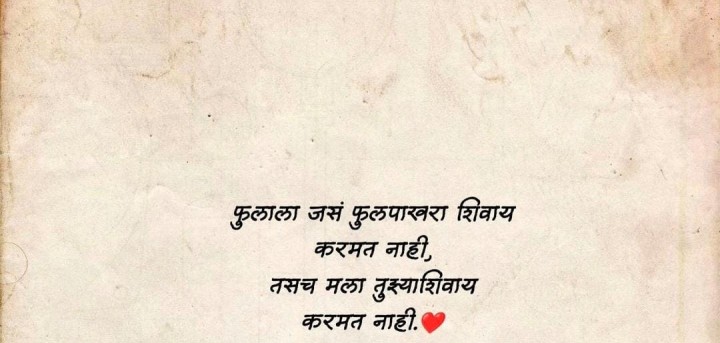 फुलाला जसं फुलपाखरा शिवाय
करमत नाही,
तसच मला तुझ्याशिवाय
करमत नाही.❤️